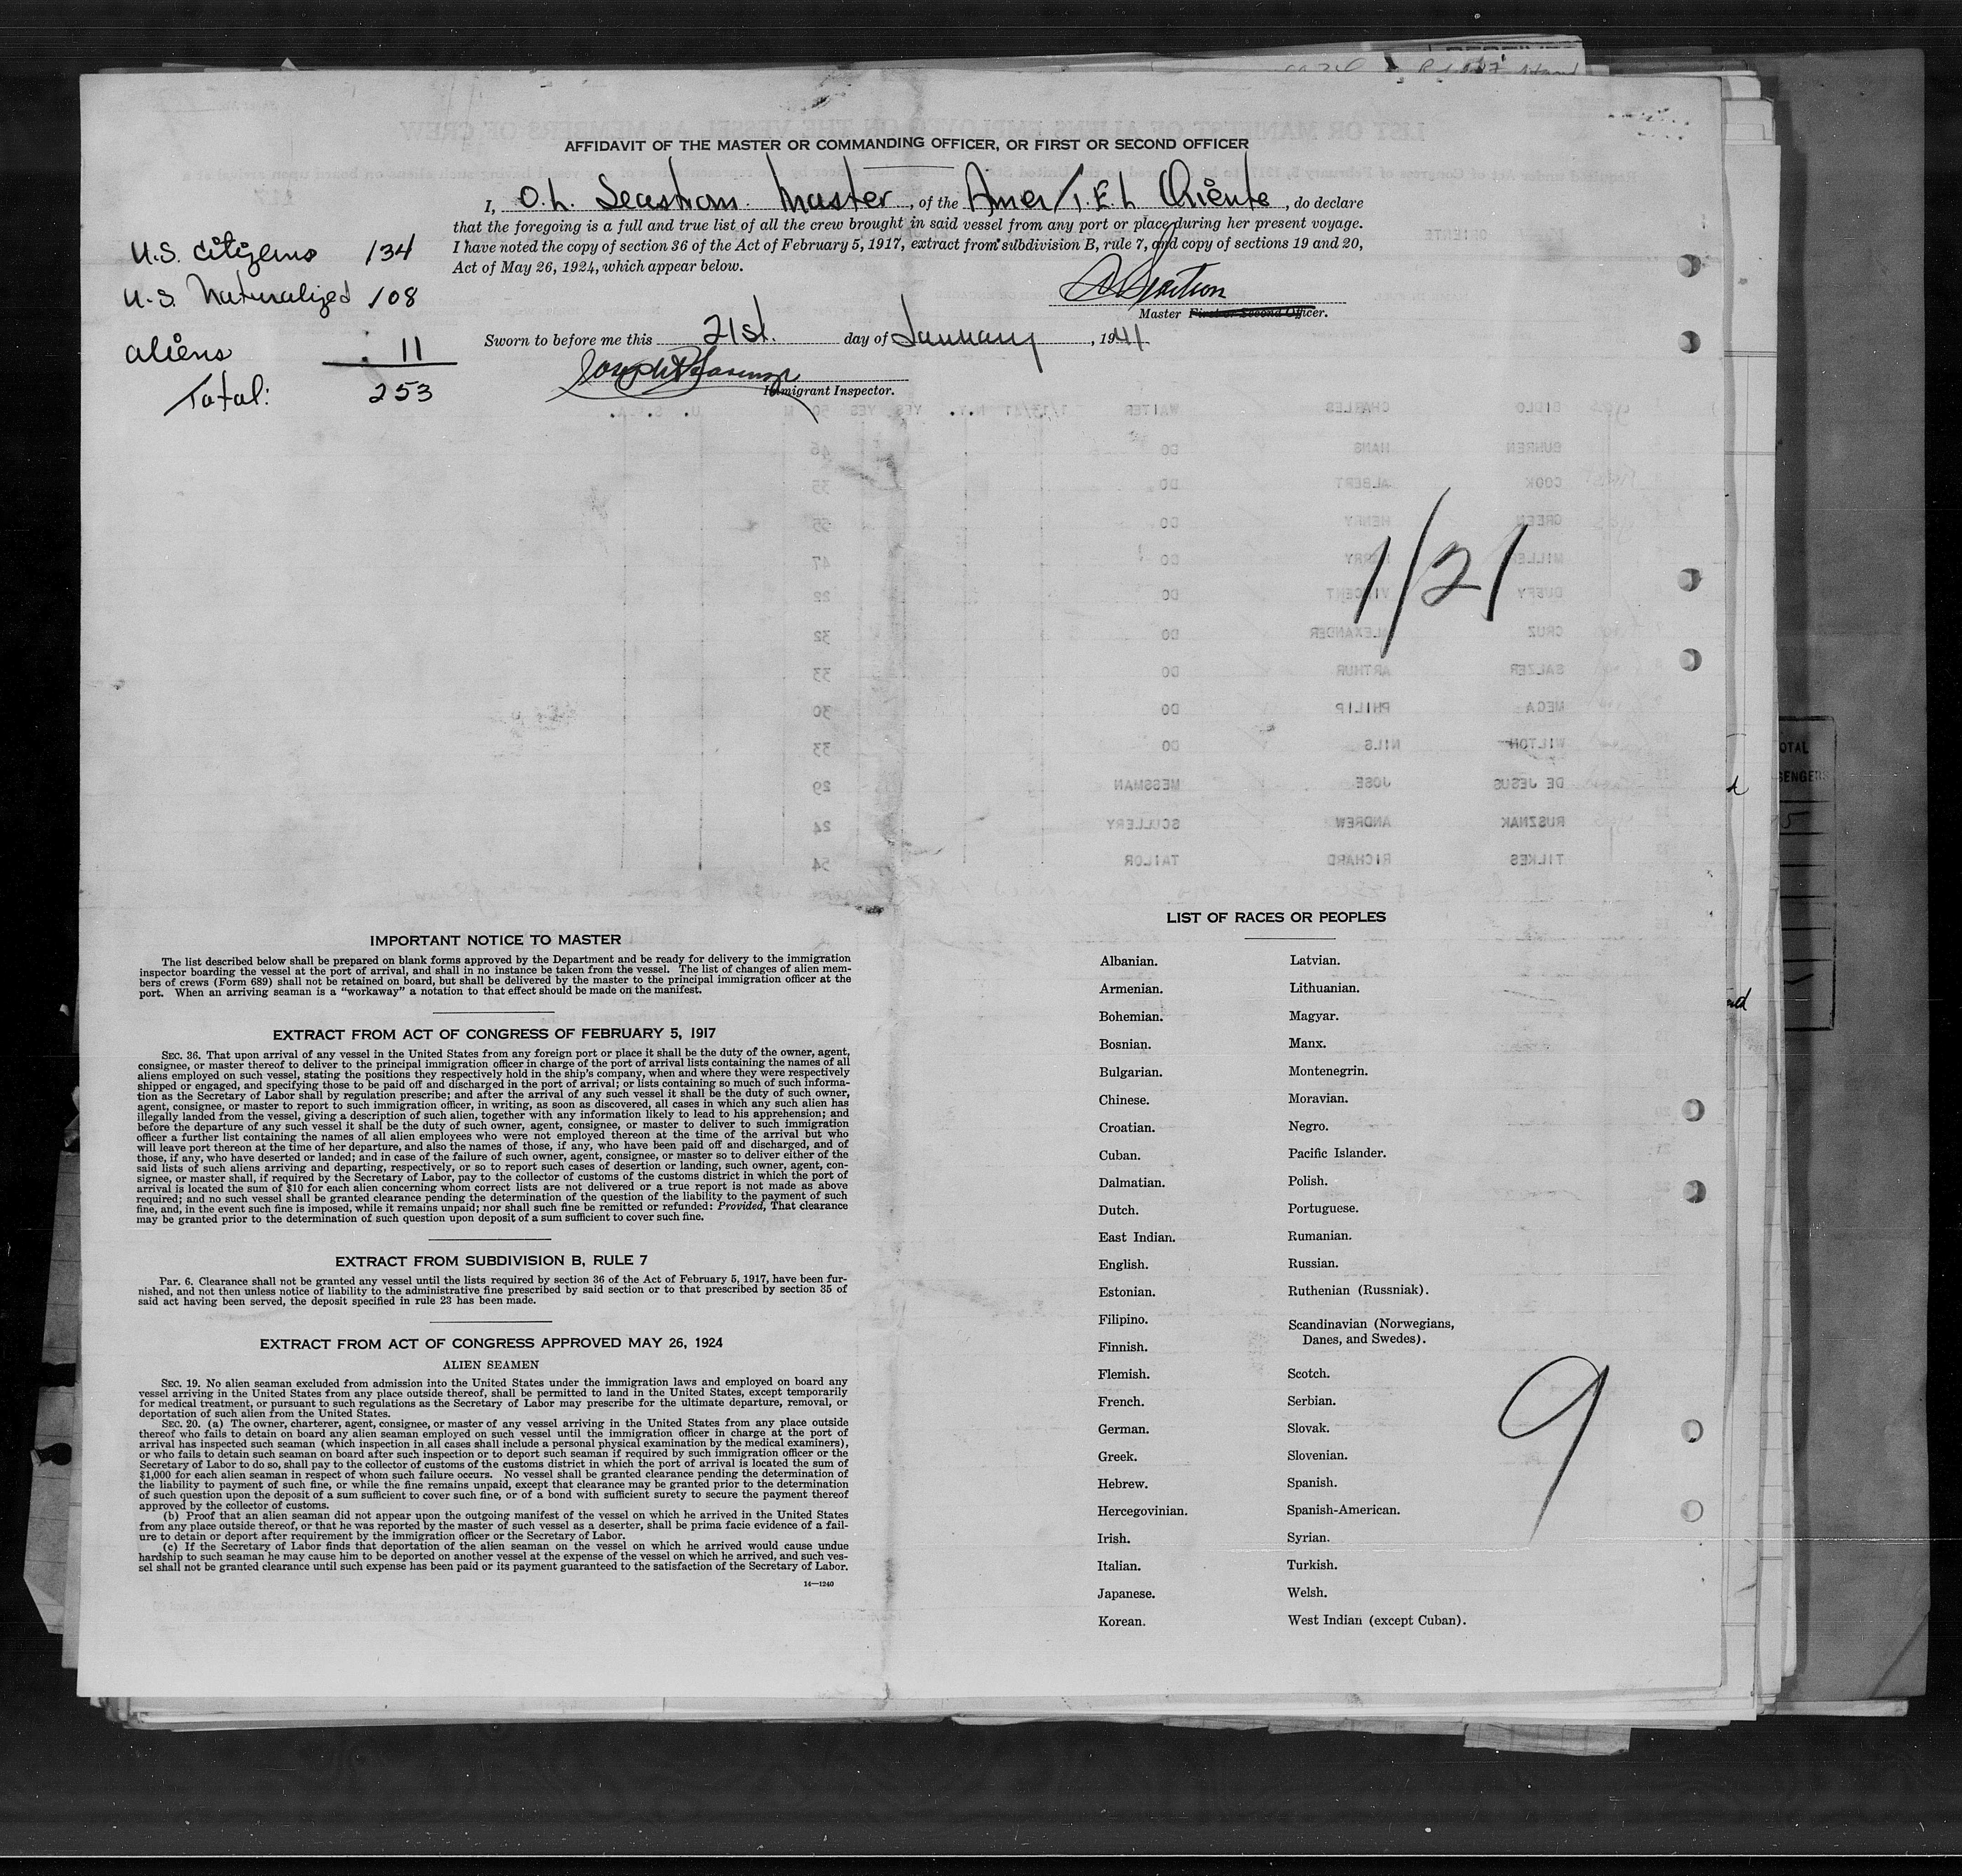 AFFIDAVIT OF THE MASTER OR COMMANDING OFFICER, OR FIRST OR SECOND OFFICER
I, O. L. Seastrom. Master, of the Amer/T.E.L Oriente, do declare
that the foregoing is a full and true list of all the crew brought in said vessel from any port or place during her present voyage.
I have noted the copy of section 36 of the Act of February 5, 1917, extract from subdivision B, rule 7, and copy of sections 19 and 20,
Act of May 26, 1924, which appear below.
Master First or Second Officer.
Sworn to before me this 21st. day of January, 1941
Immigrant Inspector.
U.S. Citizens 134
U.S. Naturalized 108
aliens 11
Total: 253
BIDLO CHARLES WAITER 1/13/41 N.Y. YES YES 50 M U. S. A.
BUHREN HANS DO 46
COOK ALBERT DO 35
GREEN HENRY DO 55
MILLER DO 47
DUFFY VINCENT DO 22
CRUZ ALEXANDER DO 32
SALZER ARTHUR DO 33
MEGA PHILIP DO 30
WILTON NILS DO 33
DE JESUS JOSE MESSMAN 29
RUSZNAK ANDREW SCULLERY 24
TILKES RICHARD TAILOR 54
1/21
IMPORTANT NOTICE TO MASTER
The list described below shall be prepared on blank forms approved by the Department and be ready for delivery to the immigration
inspector boarding the vessel at the port of arrival, and shall in no instance be taken from the vessel. The list of changes of alien mem-
bers of crews (Form 689) shall not be retained on board, but shall be delivered by the master to the principal immigration officer at the
port. When an arriving seaman is a "workaway" a notation to that effect should be made on the manifest.
EXTRACT FROM ACT OF CONGRESS OF FEBRUARY 5, 1917
SEC. 36. That upon arrival of any vessel in the United States from any foreign port or place it shall be the duty of the owner, agent,
consignee, or master thereof to deliver to the principal immigration officer in charge of the port of arrival lists containing the names of all
aliens employed on such vessel, stating the positions they respectively hold in the ship's company, when and where they were respectively
shipped or engaged, and specifying those to be paid off and discharged in the port of arrival; or lists containing so much of such informa-
tion as the Secretary of Labor shall by regulation prescribe; and after the arrival of any such vessel it shall be the duty of such owner,
agent, consignee, or master to report to such immigration officer, in writing, as soon as discovered, all cases in which any such alien has
illegally landed from the vessel, giving a description of such alien, together with any information likely to lead to his apprehension; and
before the departure of any such vessel it shall be the duty of such owner, agent, consignee, or master to deliver to such immigration
officer a further list containing the names of all alien employees who were not employed thereon at the time of the arrival but who
will leave port thereon at the time of her departure, and also the names of those, if any, who have been paid off and discharged, and of
those, if any, who have deserted or landed; and in case of the failure of such owner, agent, consignee, or master so to deliver either of the
said lists of such aliens arriving and departing, respectively, or so to report such cases of desertion or landing, such owner, agent, con-
signee, or master shall, if required by the Secretary of Labor, pay to the collector of customs of the customs district in which the port of
arrival is located the sum of $10 for each alien concerning whom correct lists are not delivered or a true report is not made as above
required; and no such vessel shall be granted clearance pending the determination of the question of the liability to the payment of such
fine, and, in the event such fine is imposed, while it remains unpaid; nor shall such fine be remitted or refunded: Provided, That clearance
may be granted prior to the determination of such question upon deposit of a sum sufficient to cover such fine.
EXTRACT FROM SUBDIVISION B, RULE 7
Par. 6. Clearance shall not be granted any vessel until the lists required by section 36 of the Act of February 5, 1917, have been fur-
nished, and not then unless notice of liability to the administrative fine prescribed by said section or to that prescribed by section 35 of
said act having been served, the deposit specified in rule 23 has been made.
EXTRACT FROM ACT OF CONGRESS APPROVED MAY 26, 1924
ALIEN SEAMEN
SEC. 19. No alien seaman excluded from admission into the United States under the immigration laws and employed on board any
vessel arriving in the United States from any place outside thereof, shall be permitted to land in the United States, except temporarily
for medical treatment, or pursuant to such regulations as the Secretary of Labor may prescribe for the ultimate departure, removal, or
deportation of such alien from the United States.
SEC. 20. (a) The owner, charterer, agent, consignee, or master of any vessel arriving in the United States from any place outside
thereof who fails to detain on board any alien seaman employed on such vessel until the immigration officer in charge at the port of
arrival has inspected such seaman (which inspection in all cases shall include a personal physical examination by the medical examiners),
or who fails to detain such seaman on board after such inspection or to deport such seaman if required by such immigration officer or the
Secretary of Labor to do so, shall pay to the collector of customs of the customs district in which the port of arrival is located the sum of
$1,000 for each alien seaman in respect of whom such failure occurs. No vessel shall be granted clearance pending the determination of
the liability to payment of such fine, or while the fine remains unpaid, except that clearance may be granted prior to the determination
of such question upon the deposit of a sum sufficient to cover such fine, or of a bond with sufficient surety to secure the payment thereof
approved by the collector of customs.
(b) Proof that an alien seaman did not appear upon the outgoing manifest of the vessel on which he arrived in the United States
from any place outside thereof, or that he was reported by the master of such vessel as a deserter, shall be prima facie evidence of a fail-
ure to detain or deport after requirement by the immigration officer or the Secretary of Labor.
(c) If the Secretary of Labor finds that deportation of the alien seaman on the vessel on which he arrived would cause undue
hardship to such seaman he may cause him to be deported on another vessel at the expense of the vessel on which he arrived, and such ves-
sel shall not be granted clearance until such expense has been paid or its payment guaranteed to the satisfaction of the Secretary of Labor.
14—1240
LIST OF RACES OR PEOPLES
Albanian.
Armenian.
Bohemian.
Bosnian.
Bulgarian.
Chinese.
Croatian.
Cuban.
Dalmatian.
Dutch.
East Indian.
English.
Estonian.
Filipino.
Finnish.
Flemish.
French.
German.
Greek.
Hebrew.
Hercegovinian.
Irish.
Italian.
Japanese.
Korean.
Latvian.
Lithuanian.
Magyar.
Manx.
Montenegrin.
Moravian.
Negro.
Pacific Islander.
Polish.
Portuguese.
Rumanian.
Russian.
Ruthenian (Russniak).
Scandinavian (Norwegians,
Danes, and Swedes).
Scotch.
Serbian.
Slovak.
Slovenian.
Spanish.
Spanish-American.
Syrian.
Turkish.
Welsh.
West Indian (except Cuban).
9